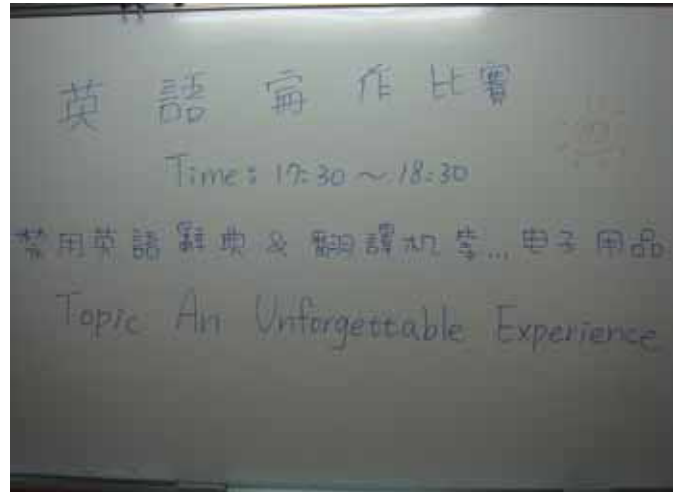 英語寫作比賽
Time: 17:30~18:30
禁用英語辭典 & 翻譯机等...电子用品
Topic An Unforgettable Experience